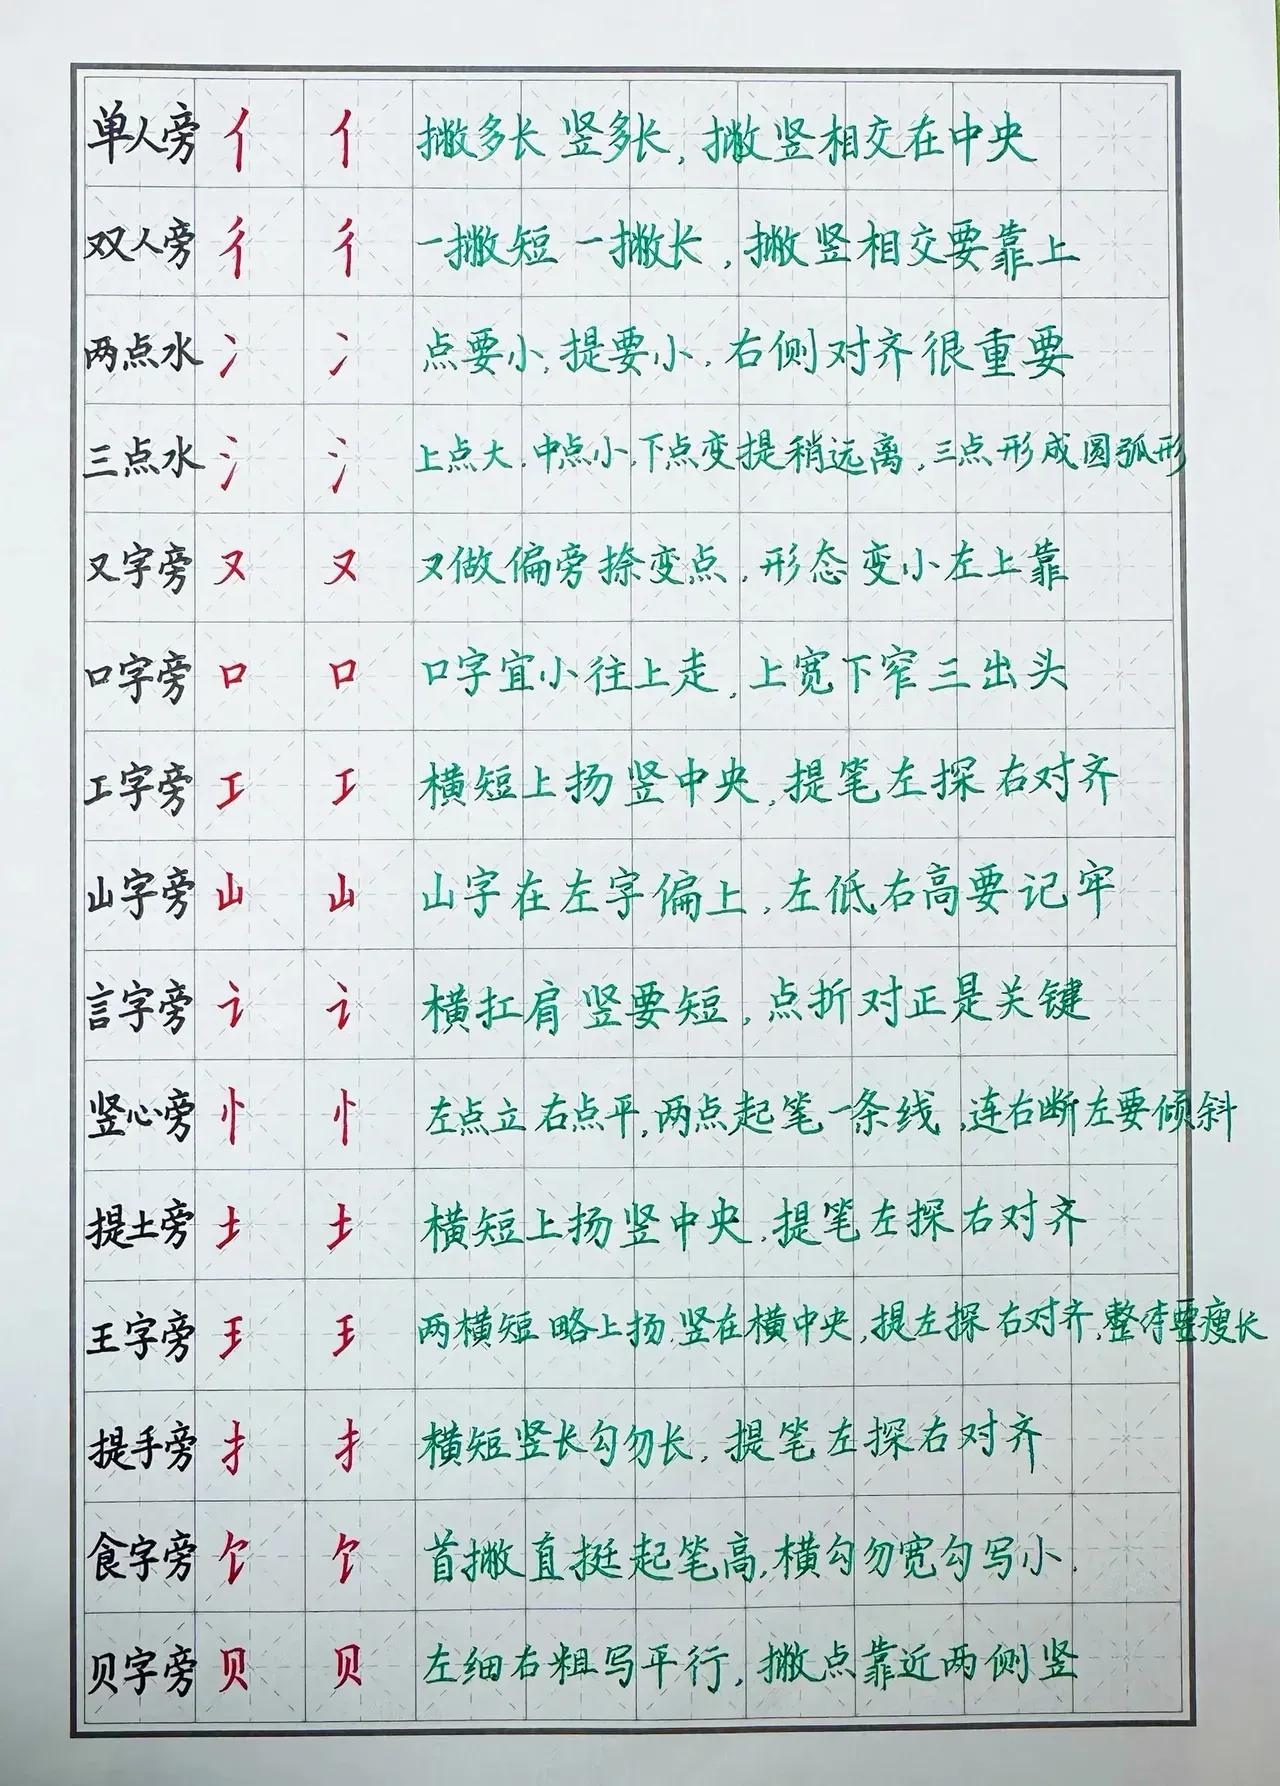 单人旁 亻 亻 撇多长 竖多长，撇竖相交在中央
双人旁 彳 彳 一撇短 一撇长，撇竖相交要靠上
两点水 冫 冫 点要小，提要小，右侧对齐很重要
三点水 氵 氵 上点大，中点小，下点变提稍远离，三点形成圆弧形
又字旁 又 又 又做偏旁捺变点，形态变小左上靠
口字旁 口 口 口字宜小往上走，上宽下窄三出头
工字旁 工 工 横短上扬竖中央，提笔左探右对齐
山字旁 山 山 山字在左字偏上，左低右高要记牢
言字旁 讠 讠 横扛肩竖要短，点折对正是关键
竖心旁 忄 忄 左点立右点平，两点起笔一条线，连右断左要倾斜
提土旁 土 土 横短上扬竖中央，提笔左探右对齐
王字旁 王 王 两横短略上扬，竖在横中央，提左探右对齐，整体要瘦长
提手旁 扌 扌 横短竖长勾勿长，提笔左探右对齐
食字旁 饣 饣 首撇直挺起笔高，横勾勿宽勾写小.
贝字旁 贝 贝 左细右粗写平行，撇点靠近两侧竖